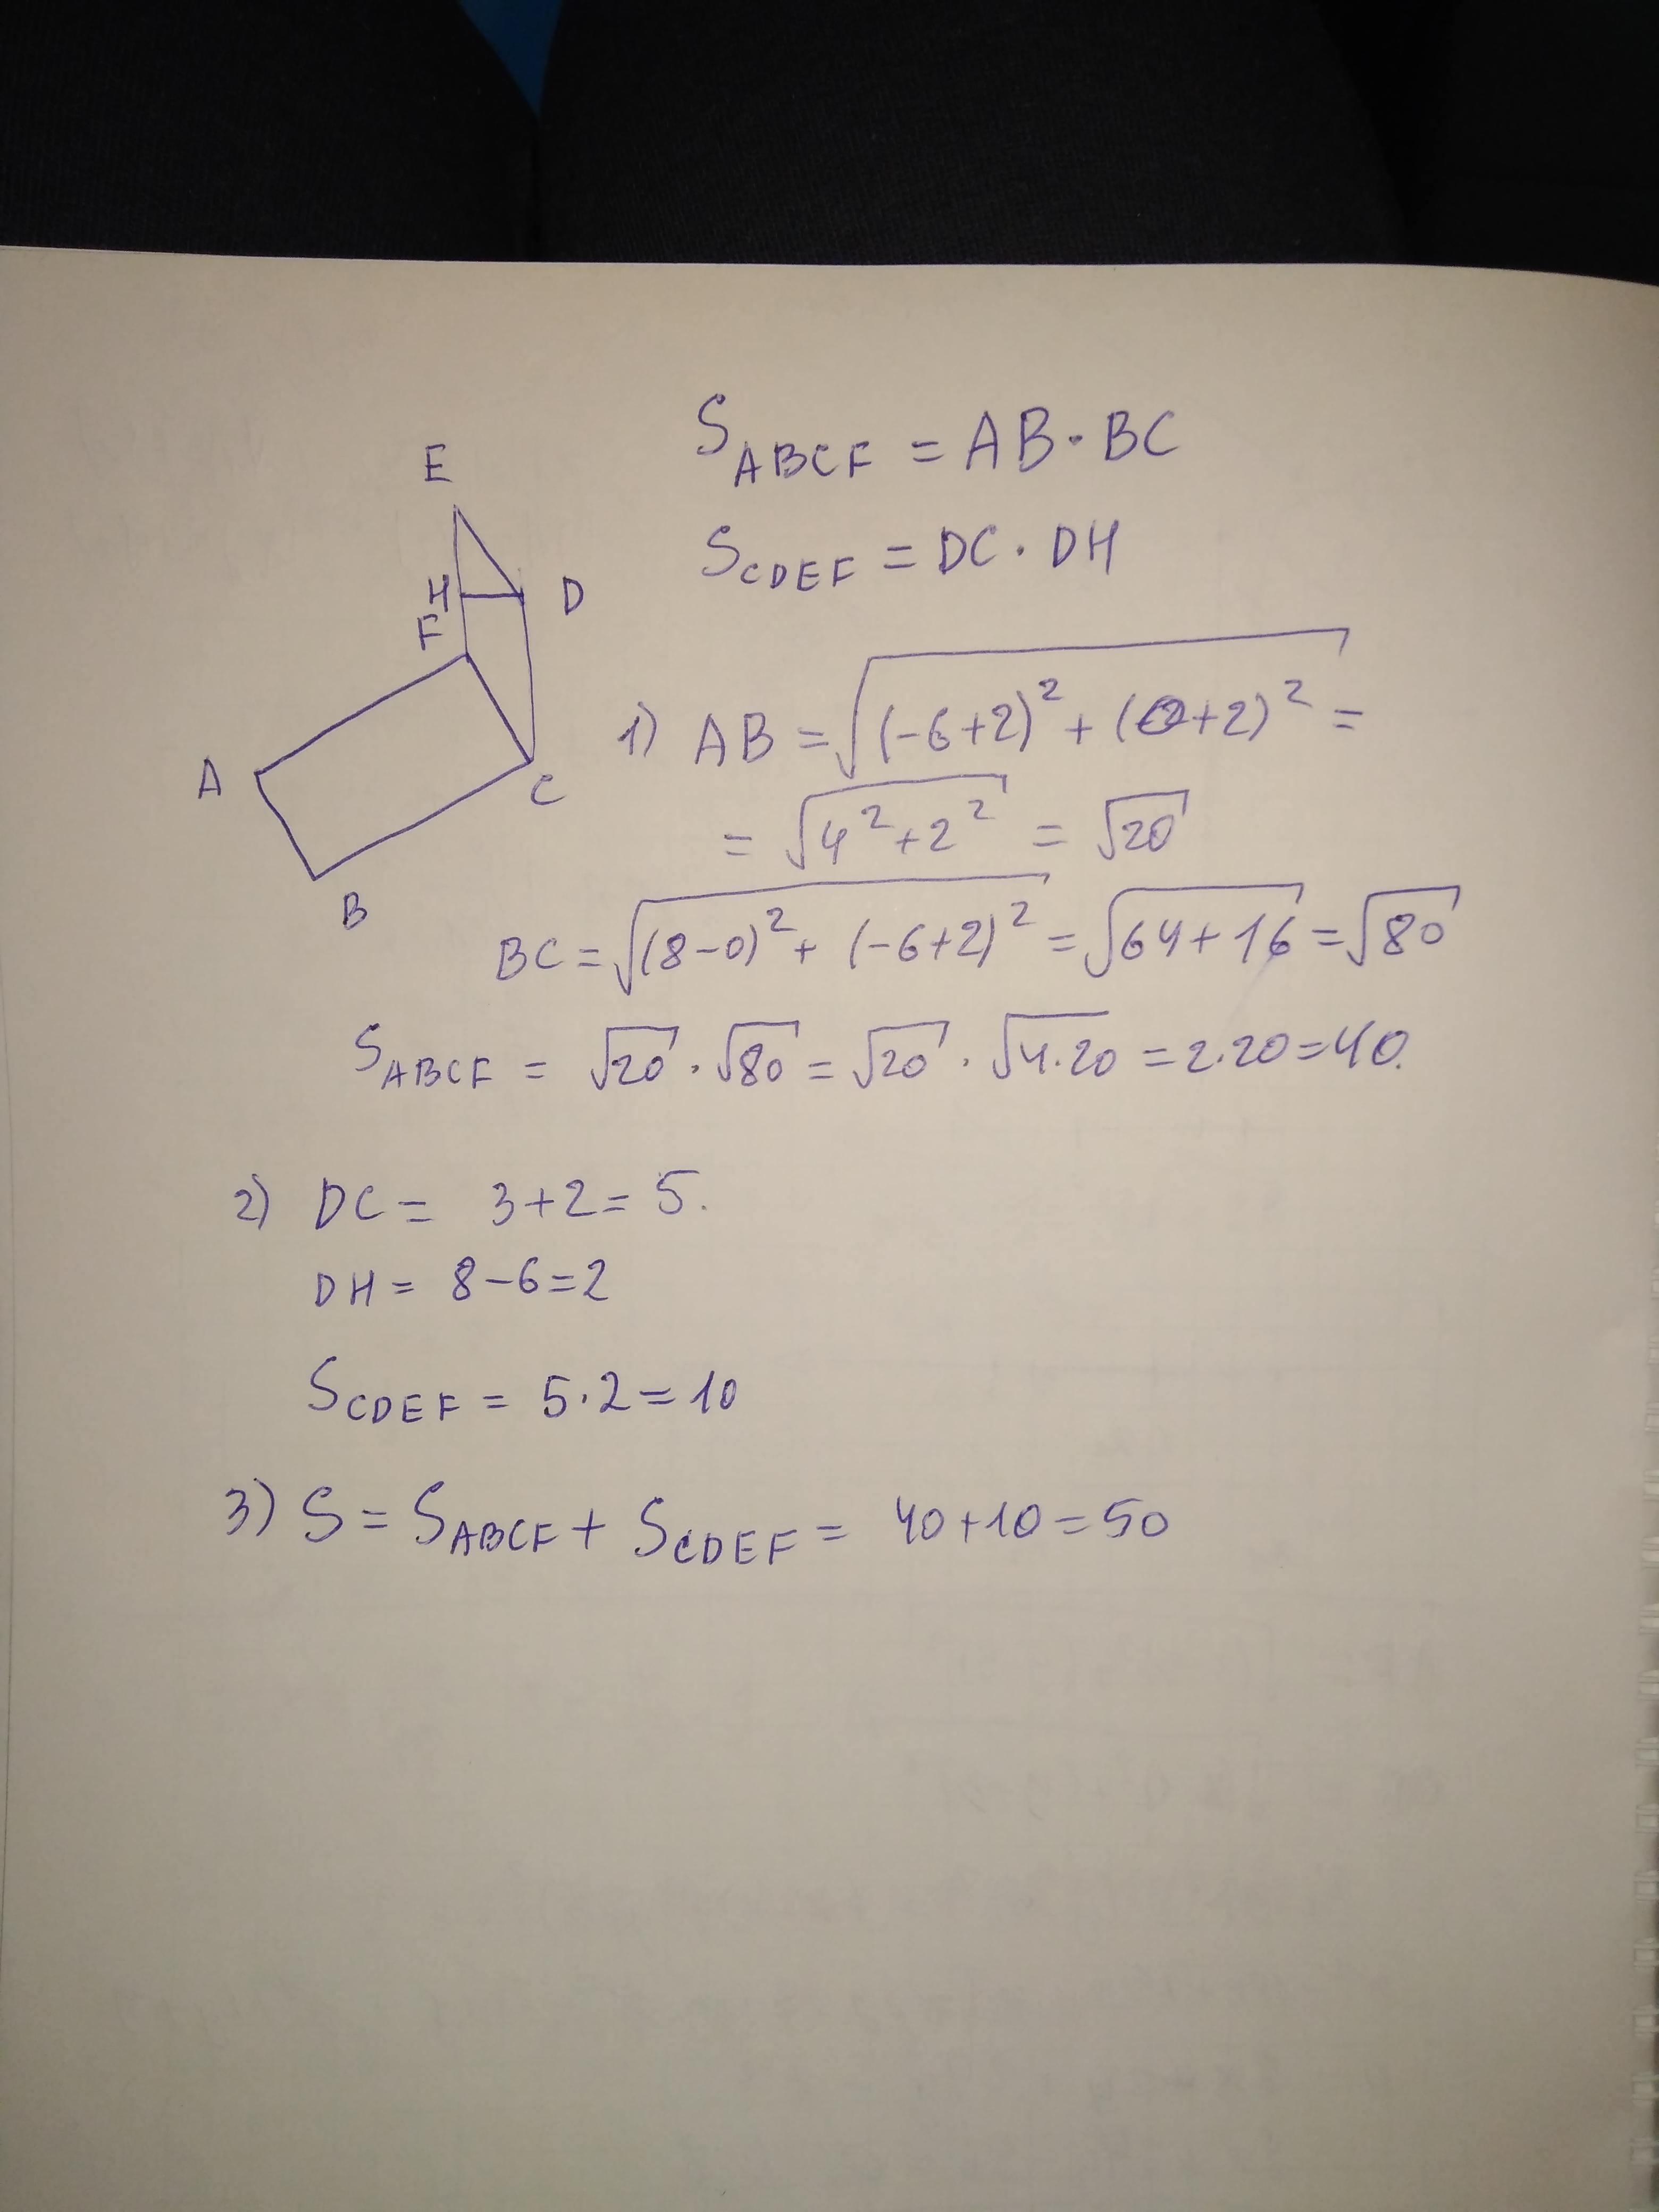 E
H
D
F
A
C
B
S_ABCF = AB · BC
S_CDEF = DC · DH
1) AB = √((-6+2)² + (0+2)²) =
= √(4²+2²) = √20
BC = √((8-0)² + (-6+2)²) = √(64+16) = √80
S_ABCF = √20 · √80 = √20 · √(4·20) = 2·20 = 40.
2) DC = 3+2 = 5.
DH = 8-6 = 2
S_CDEF = 5·2 = 10
3) S = S_ABCF + S_CDEF = 40+10 = 50